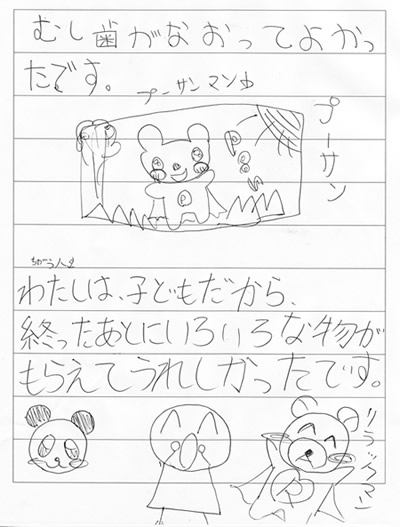 むし歯がなおってよかっ
たです。
プーサンマン♪
プーサン
P
ちがう人♪
わたしは、子どもだから、
終ったあとにいろいろな物が
もらえてうれしかったです。
リラックマン